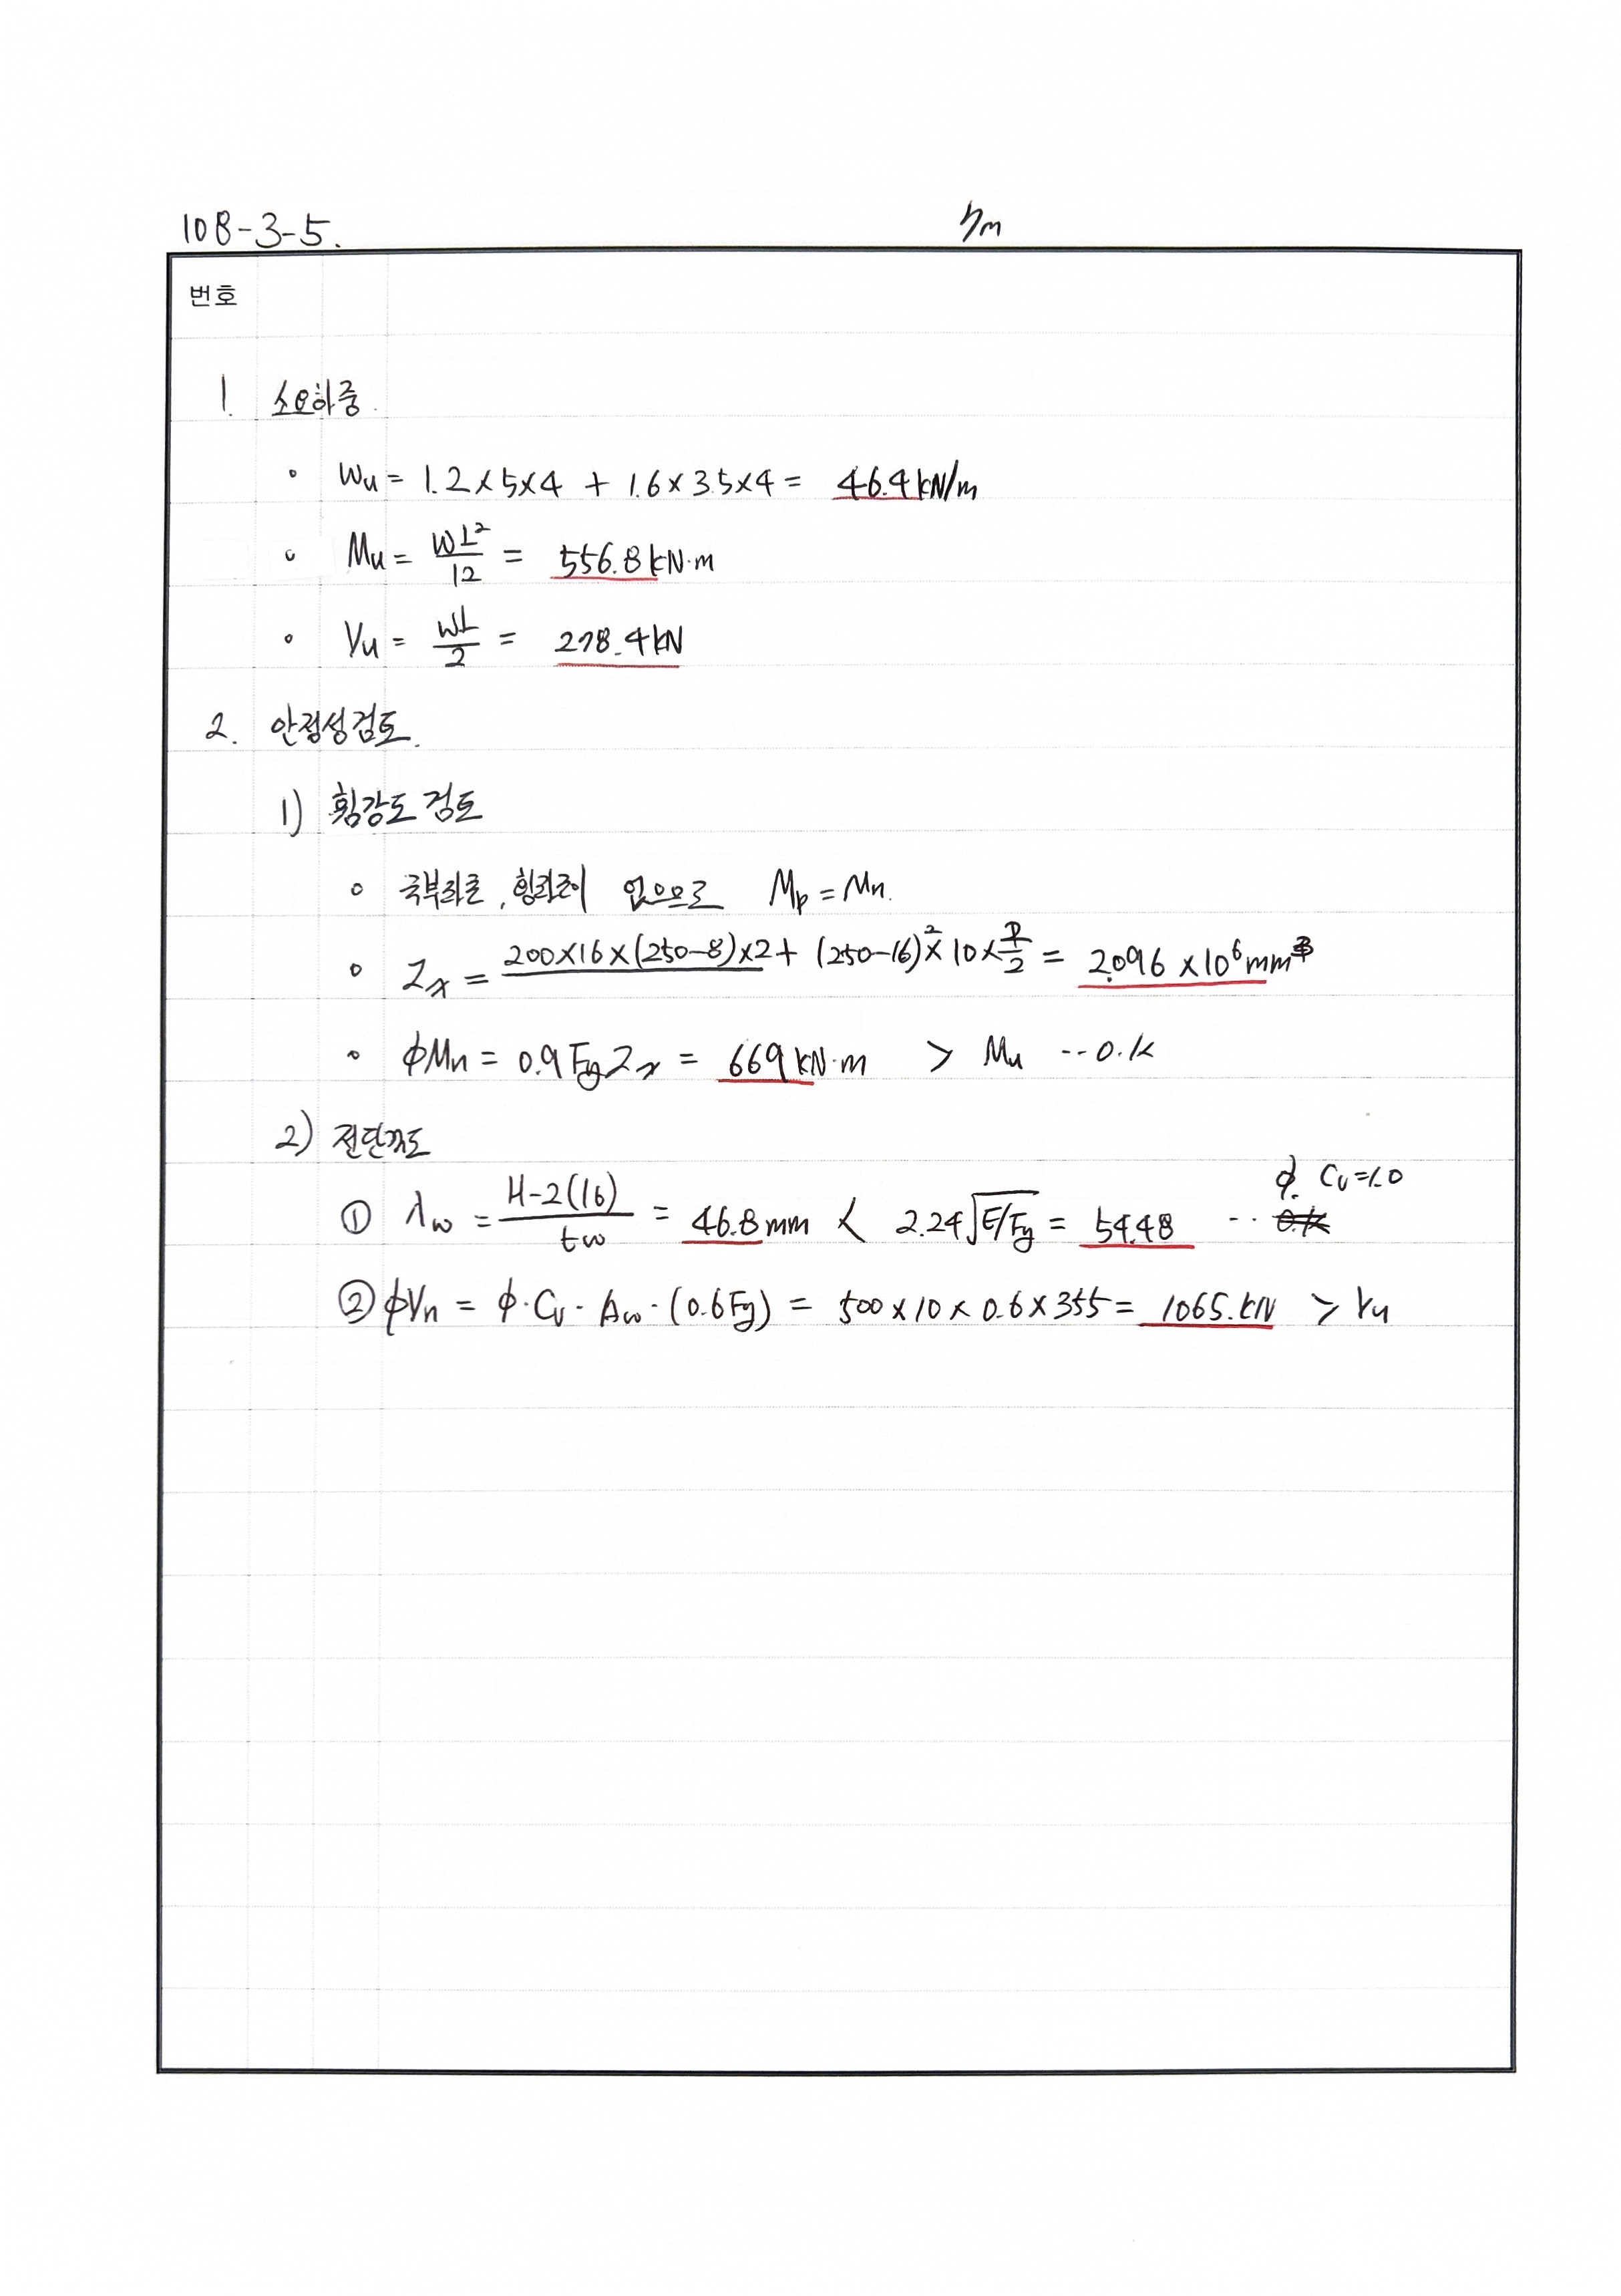 108-3-5.
번호
1. 소요하중.
◦ Wu = 1.2×5×4 + 1.6×3.5×4 = 46.4kN/m
◦ Mu = WL²/12 = 556.8kN·m
◦ Vu = WL/2 = 278.4kN
2. 안정성검토.
1) 휨강도 검토
◦ 국부좌굴, 횡좌굴이 없으므로 Mp = Mn.
◦ Zx = 200×16×(250-8)×2 + (250-16)²×10× /2 = 2.096×10⁶mm³
◦ ϕMn = 0.9FyZx = 669kN·m > Mu --O.K
2) 전단강도
① λw = H-2(16)/tw = 46.8mm < 2.24√E/Fy = 54.48 -- ϕ. Cv=1.0
② ϕVn = ϕ·Cv·Aw·(0.6Fy) = 500×10×0.6×355 = 1065.kN > Vu